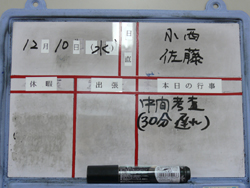 12月10日(水)
日直
小西
佐藤
休暇
出張
本日の行事
中間考査
(30分遅れ)